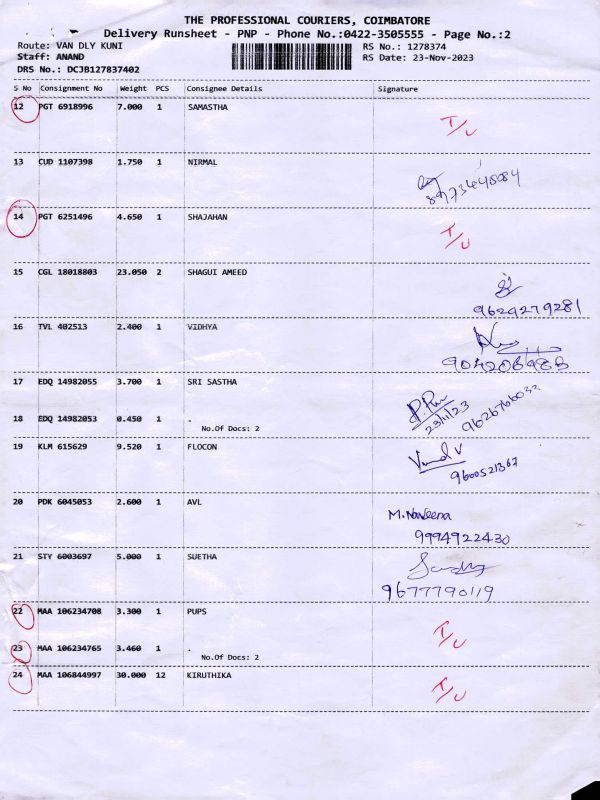 THE PROFESSIONAL COURIERS, COIMBATORE
Delivery Runsheet - PNP - Phone No.:0422-3505555 - Page No.:2
Route: VAN DLY KUNI RS No.: 1278374
Staff: ANAND RS Date: 23-Nov-2023
DRS No.: DCJB127837402
S No Consignment No Weight PCS Consignee Details Signature
12 PGT 6918996 7.000 1 SAMASTHA
T/U
13 CUD 1107398 1.750 1 NIRMAL
14 PGT 6251496 4.650 1 SHAJAHAN
T/U
15 CGL 18018803 23.050 2 SHAGUI AMEED
9629279281
16 TVL 402513 2.400 1 VIDHYA
17 EDQ 14982055 3.700 1 SRI SASTHA
23/11/23
18 EDQ 14982053 0.450 1 .
No.Of Docs: 2
19 KLM 615629 9.520 1 FLOCON
9600521367
20 PDK 6045053 2.600 1 AVL
M.Naveena
9994922430
21 STY 6003697 5.000 1 SUETHA
9677790119
22 MAA 106234708 3.300 1 PUPS
T/U
23 MAA 106234765 3.460 1 .
No.Of Docs: 2
24 MAA 106844997 30.000 12 KIRUTHIKA
T/U